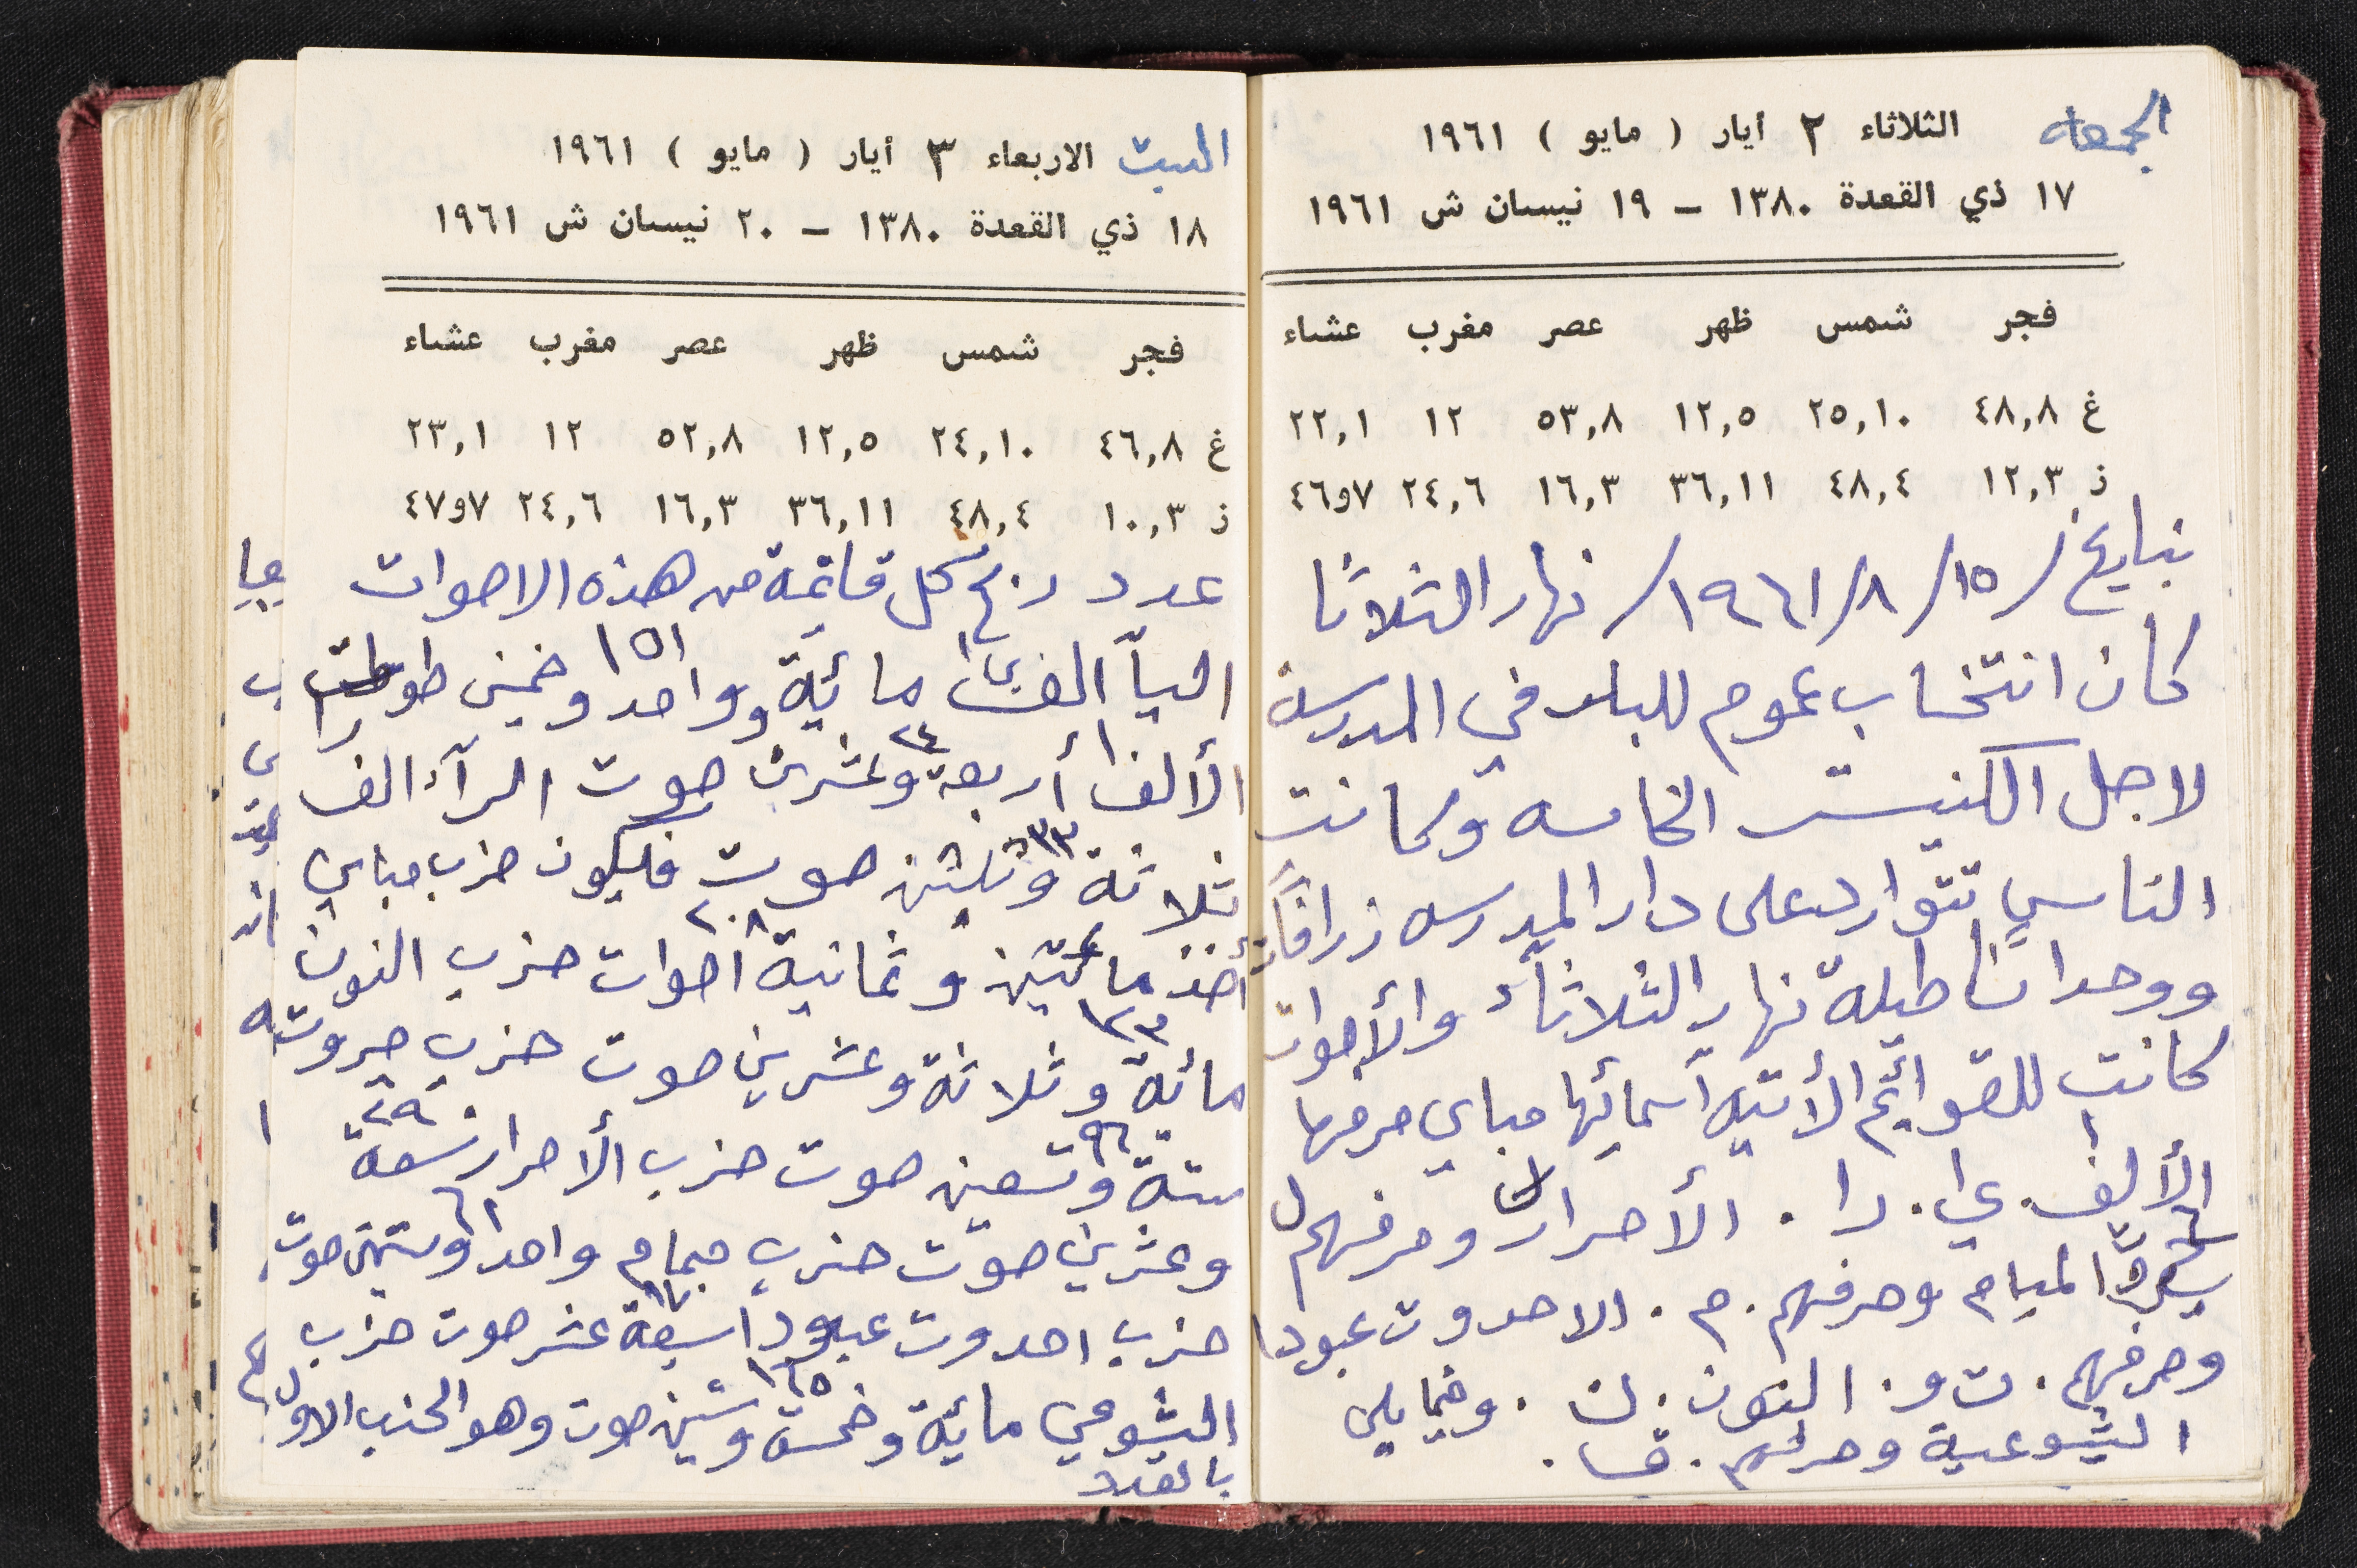 الجمعه
الثلاثاء ٢ أيار ( مايو ) ١٩٦١
١٧ ذي القعدة ١٣٨٠ - ١٩ نيسان ش ١٩٦١
فجر شمس ظهر عصر مغرب عشاء
غ ٤٨,٨ ٢٥,١٠ ١٢,٥ ٥٣,٨ ١٢ ٢٢,١
ز ١٢,٣ ٤٨,٤ ٣٦,١١ ١٦,٣ ٢٤,٦ ٧و٤٦
بتايخ /١٥/٨/١٩٦١/ نهار الثلاثا
كان انتخاب عموم للبلد في المدرسة
لاجل الكنيست الخامسه وكانت
الناس تتوارد على دار المدرسه زرافات
ووحدانا طيلة نهار الثلاثاء والأصوات
كانت للقوائم الأتيه آسمائها مباي حرفها
الألف. عا. را. الأحرار وحرفهم ل
المبام وحرفهم. م. الاحدوت عبودا
وحرفهم. ت و. النون. ن. وفيما يلي
الشيوعية وحرفهم. قا.
السبت
الاربعاء ٣ أيار ( مايو ) ١٩٦١
١٨ ذي القعدة ١٣٨٠ - ٢٠ نيسان ش ١٩٦١
فجر شمس ظهر عصر مغرب عشاء
غ ٤٦,٨ ٢٤,١٠ ١٢,٥ ٥٢,٨ ١٢ ٢٣,١
ز ١٠,٣ ٤٨,٤ ٣٦,١١ ١٦,٣ ٢٤,٦ ٧و٤٧
عدد ربح كل قائمة من هذه الاصوات
اليآ الف مائية وواحد وخمين ١٥١
الألف أربعة وعشرين ٢٤ صوت الرآء الف
ثلاثة وثلثين ٣٣ صوت فليكون حزب مباي
أخذ مائتين وثمانية ٢٠٨ اصوات حزب النون
مائية وثلاثة وعشرين ١٢٣ صوت حزب حروت
ستة وتسعين ٩٦ صوت حزب الأحرار تسعة ٢٩
وعشرين صوت حزب مبام واحد وستين ٦١ صوت
حزب احدوت عبودا سبعة عشر ١٧ صوت حزب
الشيوعي مائية وخمسة وستين ١٦٥ صوت وهو الحزب الاول
بالعدد